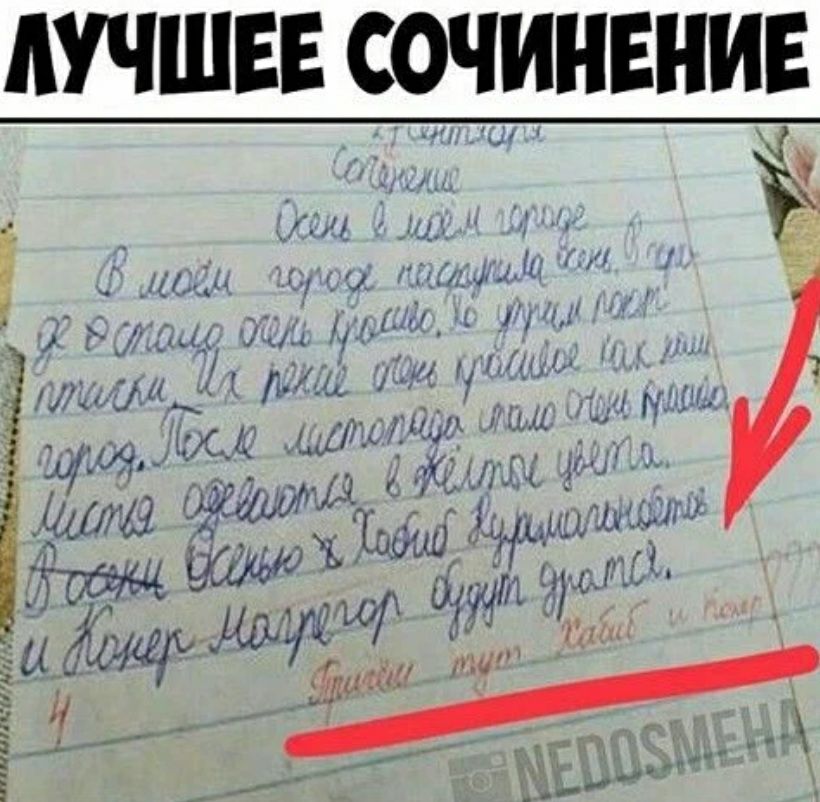 ЛУЧШЕЕ СОЧИНЕНИЕ
27 сентября
Сочинение
Осень в моём городе
В моём городе наступила осень. В горо-
де стало очень красиво. По утрам поют
птички. Их пение очень красивое как наш
город. После листопада стало очень красиво
Листья одеваются в жёлтые цвета.
В осени Осенью Хабиб Нурмагомедов
и Конер Магрегор будут дратся.
4 Причём тут Хабиб и Конер ???
NEDOSMEHA